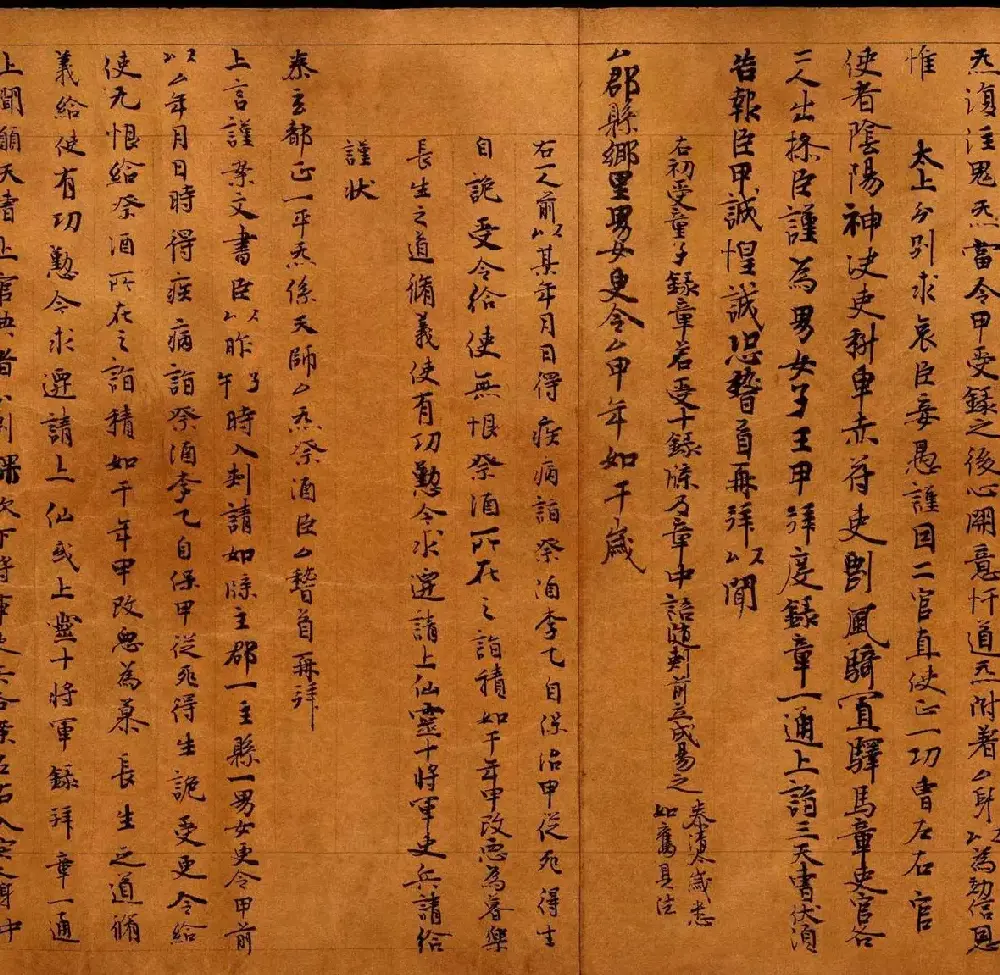 炁復注鬼炁當令甲受録之後心開意忏道炁附著厶身以為効信恩
惟
太上分別求哀臣妾愚謹因二官直使正一功曹左右官
使者陰陽神決吏科車赤符吏罡風騎置驛馬章吏官各
二人出操臣謹為男女子王甲拜度録章一通上詣三天曹伏須
告報臣甲誠惶誠恐稽首再拜以聞
右初受童子録章若受十録牒乃章中語道刾前立成易之
泰清太歲悉
如舊具法
厶郡縣鄉里男女更令厶甲年如干歲
右一人前以某年月日得疾病詣祭酒李乙自保治甲從死得生
自詭受令給使無恨祭酒所在之詣積如干年甲改惡為善樂
長生之道脩義使有功勳令求遷請上仙靈十將軍吏兵請給
謹狀
泰玄都正一平炁係天師厶炁祭酒臣厶稽首再拜
上言謹案文書臣以昨子午時入刾請如牒主郡一主縣一男女更令甲前
以厶年月日時得疾病詣祭酒李乙自保甲從死得生詭受更令給
使无恨給祭酒所在之詣積如干年甲改惡為慕長生之道脩
義給使有功勳令求遷請上仙或上靈十將軍録拜章一通
上聞願天曹上官典者分別